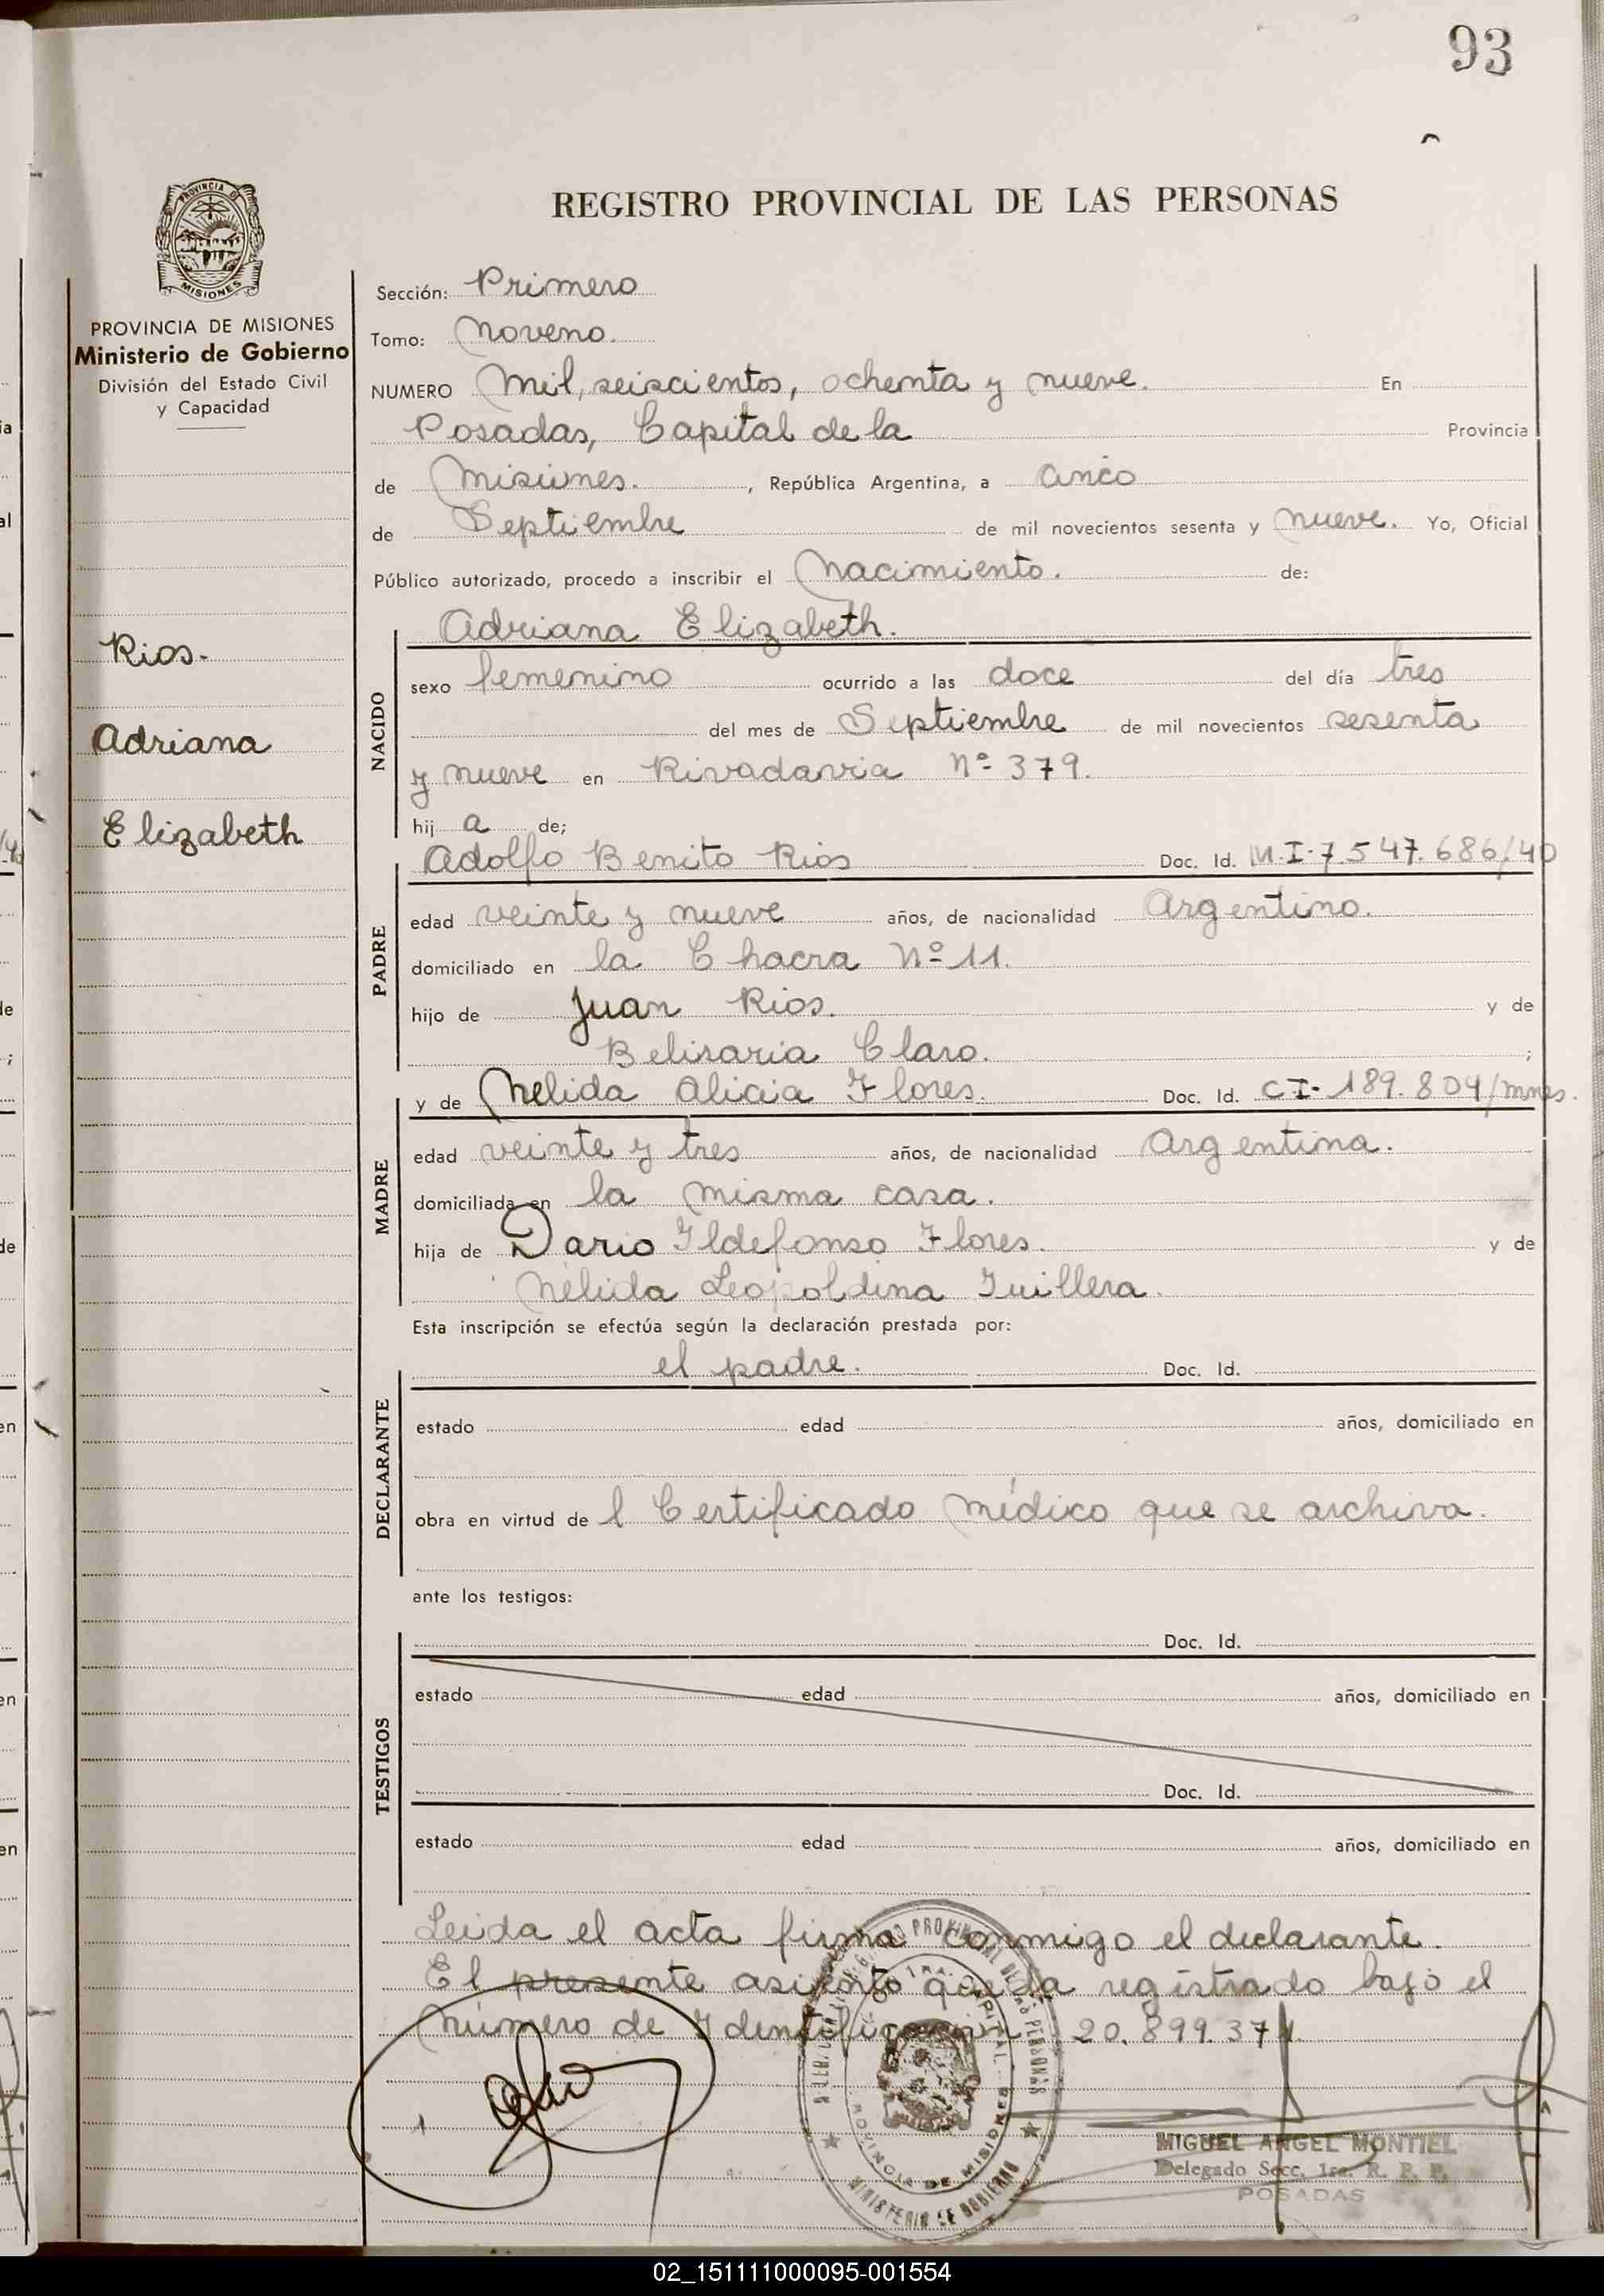 93
REGISTRO PROVINCIAL DE LAS PERSONAS
PROVINCIA DE MISIONES
Ministerio de Gobierno
División del Estado Civil
y Capacidad
Rios.
Adriana
Elizabeth
Sección: Primero
Tomo: Noveno.
NUMERO Mil, seiscientos, ochenta y nueve. En
Posadas, Capital de la Provincia
de Misiones. , República Argentina, a cinco
de Septiembre de mil novecientos sesenta y nueve. Yo, Oficial
Público autorizado, procedo a inscribir el Nacimiento. de:
NACIDO
Adriana Elizabeth.
sexo femenino ocurrido a las doce del día tres
del mes de Septiembre de mil novecientos sesenta
y nueve en Rivadavia Nº 379.
hij a de;
PADRE
Adolfo Benito Rios Doc. Id. M.I. 7.547.686/40
edad veinte y nueve años, de nacionalidad Argentino.
domiciliado en la Chacra Nº 11.
hijo de Juan Rios. y de
Belisaria Claro. ;
MADRE
y de Nelida Alicia Flores. Doc. Id. C.I. 189.804/mnes.
edad veinte y tres años, de nacionalidad Argentina.
domiciliada en la misma casa.
hija de Dario Ildefonso Flores. y de
Nélida Leopoldina Guillera.
Esta inscripción se efectúa según la declaración prestada por:
DECLARANTE
el padre. Doc. Id.
estado edad años, domiciliado en
obra en virtud de l Certificado Médico que se archiva.
ante los testigos:
TESTIGOS
Doc. Id.
estado edad años, domiciliado en
Doc. Id.
estado edad años, domiciliado en
Leida el acta firma conmigo el declarante.
El presente asiento queda registrado bajo el
Número de Identificación 20.899.371.
MIGUEL ANGEL MONTIEL
Delegado Secc. 1ra. R. P. P.
POSADAS
02_151111000095-001554